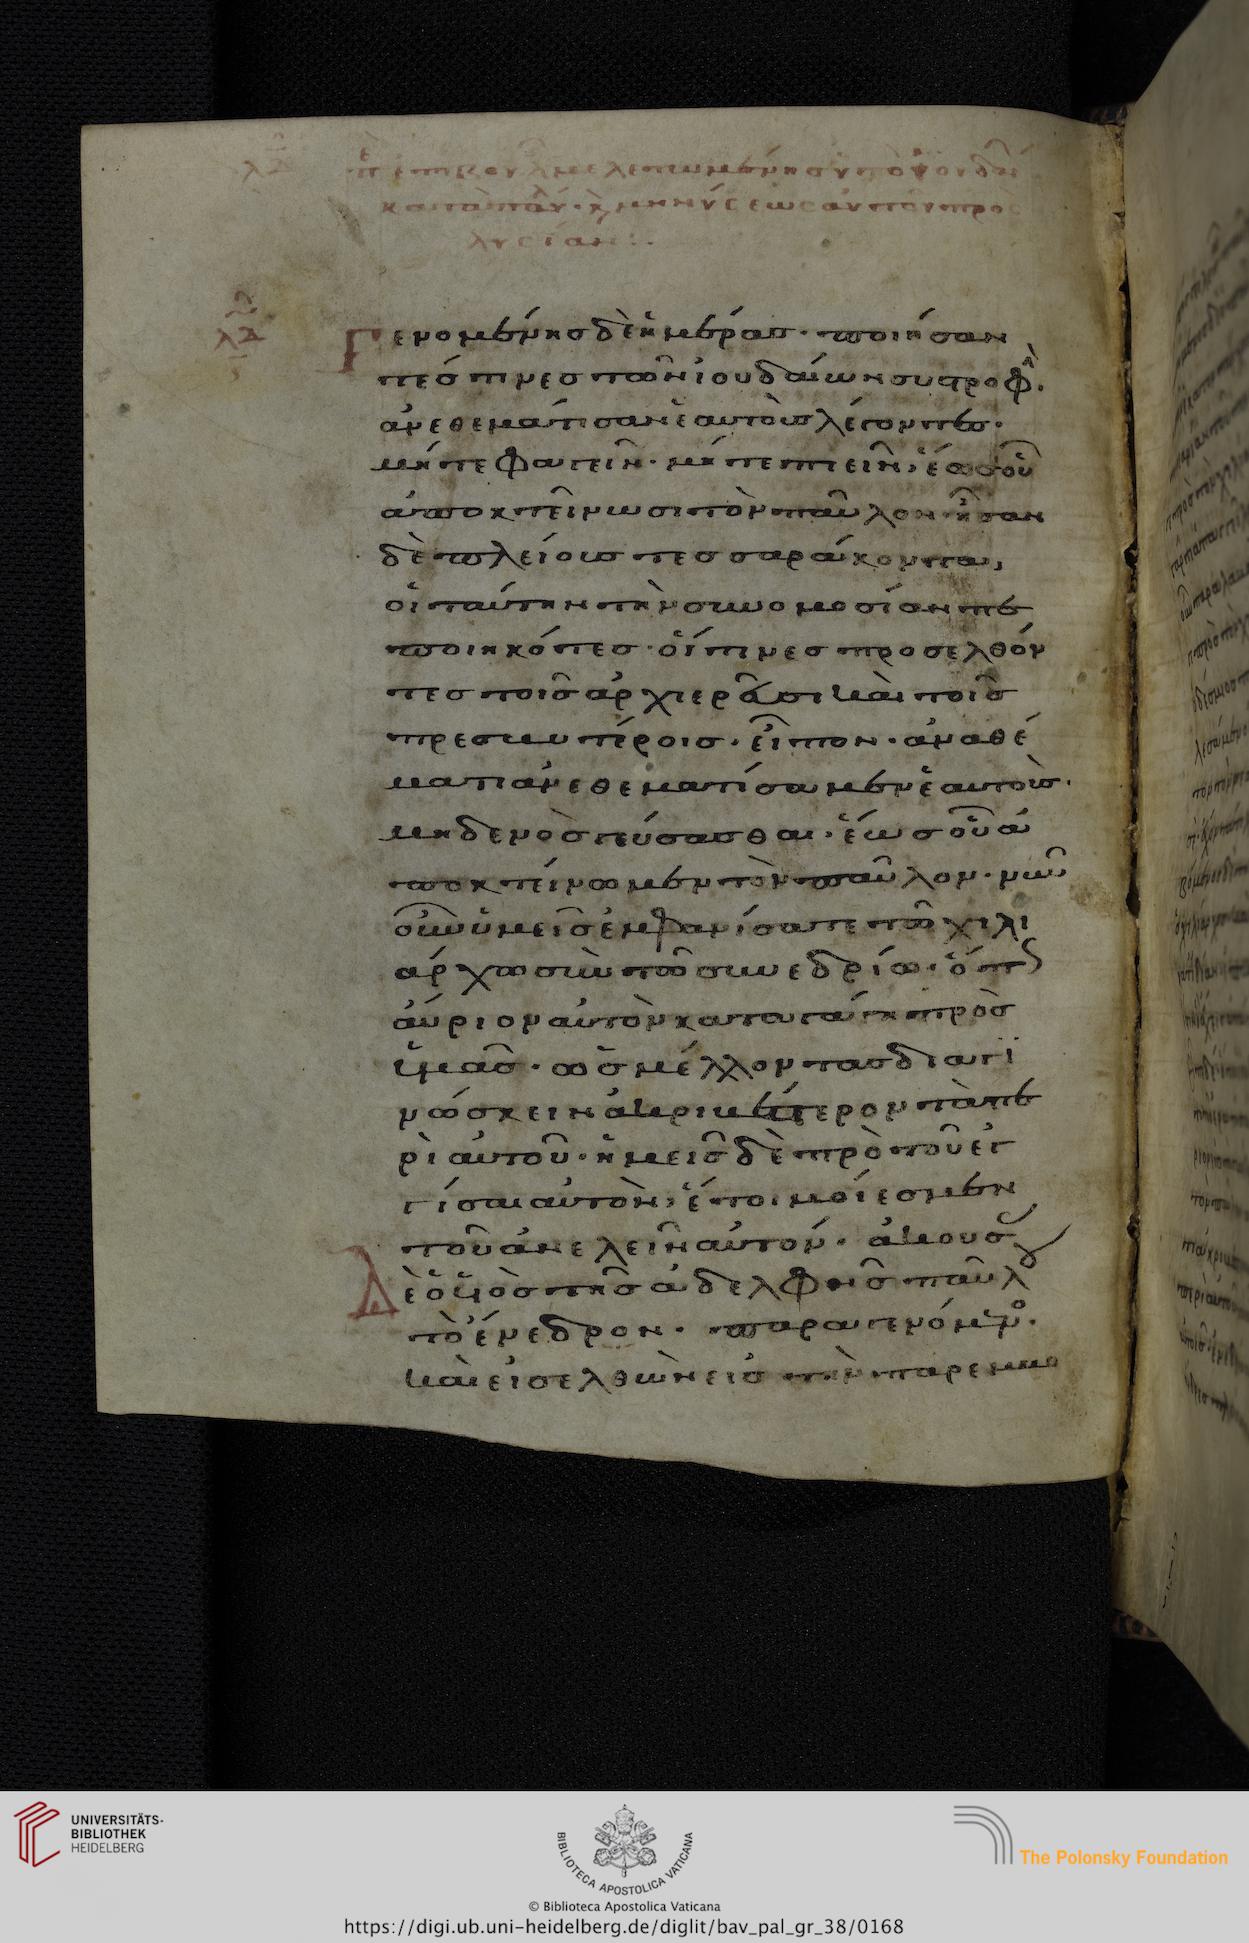 λδ
π ἐπιβουλ μελετωμένης ὑπὸ ἰουδαί
κατὰ παύλ. κ μηνύσεως αὐτῶν πρὸς
λυσίαν:.
λδ
Γενομένης δὲ ἡμέρας· ποιήσαν
τές τινες τῶν ἰουδαίων συστροφ.
ἀνεθεμάτισαν ἑαυτοὺς λέγοντες·
μήτε φαγεῖν· μήτε πιεῖν, ἕως οὗ
ἀποκτείνωσι τὸν παῦλον· ἦσαν
δὲ πλείους τεσσαράκοντα,
οἱ ταύτην τὴν συνομοσίαν πε
ποιηκότες· οἵτινες προσελθόν
τες τοῖς ἀρχιερεῦσι καὶ τοῖς
πρεσβυτέροις· εἶπον· ἀναθέ
ματι ἀνεθεματίσαμεν ἑαυτοὺς·
μηδενὸς γεύσασθαι· ἕως οὗ ἀ
ποκτείνωμεν τὸν παῦλον· νῦν
οὖν ὑμεῖς ἐμφανίσατε τῶ χιλι
άρχω σὺν τῶ συνεδρίω· ὅπ
αὔριον αὐτὸν καταγάγη πρὸς
ὑμᾶς· ὡς μέλλοντας διαγι
νώσκειν ἀκριβέστερον τὰ πε
ρὶ αὐτοῦ· ἡμεῖς δὲ πρὸ τοῦ ἐγ
γίσαι αὐτὸν, ἕτοιμοί ἐσμεν
τοῦ ἀνελεῖν αὐτόν· ἀκούσ
Δὲ ὁ υἱὸς τῆς ἀδελφῆς παύλ
τὸ ἔνεδρον· παραγενόμν·
καὶ εἰσελθὼν εἰς τὴν παρεμβο
UNIVERSITÄTS-
BIBLIOTHEK
HEIDELBERG
BIBLIOTECA APOSTOLICA VATICANA
The Polonsky Foundation
© Biblioteca Apostolica Vaticana
https://digi.ub.uni-heidelberg.de/diglit/bav_pal_gr_38/0168